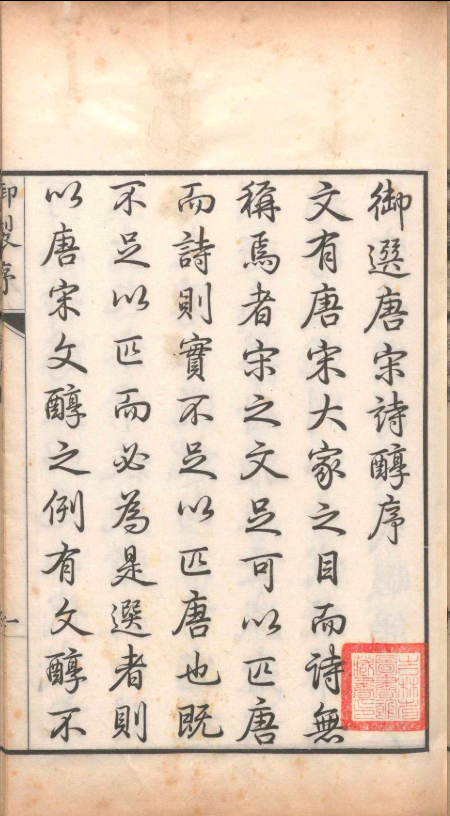 御選唐宋詩醇序
文有唐宋大家之目而詩無
稱焉者宋之文足可以匹唐
而詩則實不足以匹唐也既
不足以匹而必為是選者則
以唐宋文醇之例有文醇不
御製序
一
吉林省
圖書館
藏書印